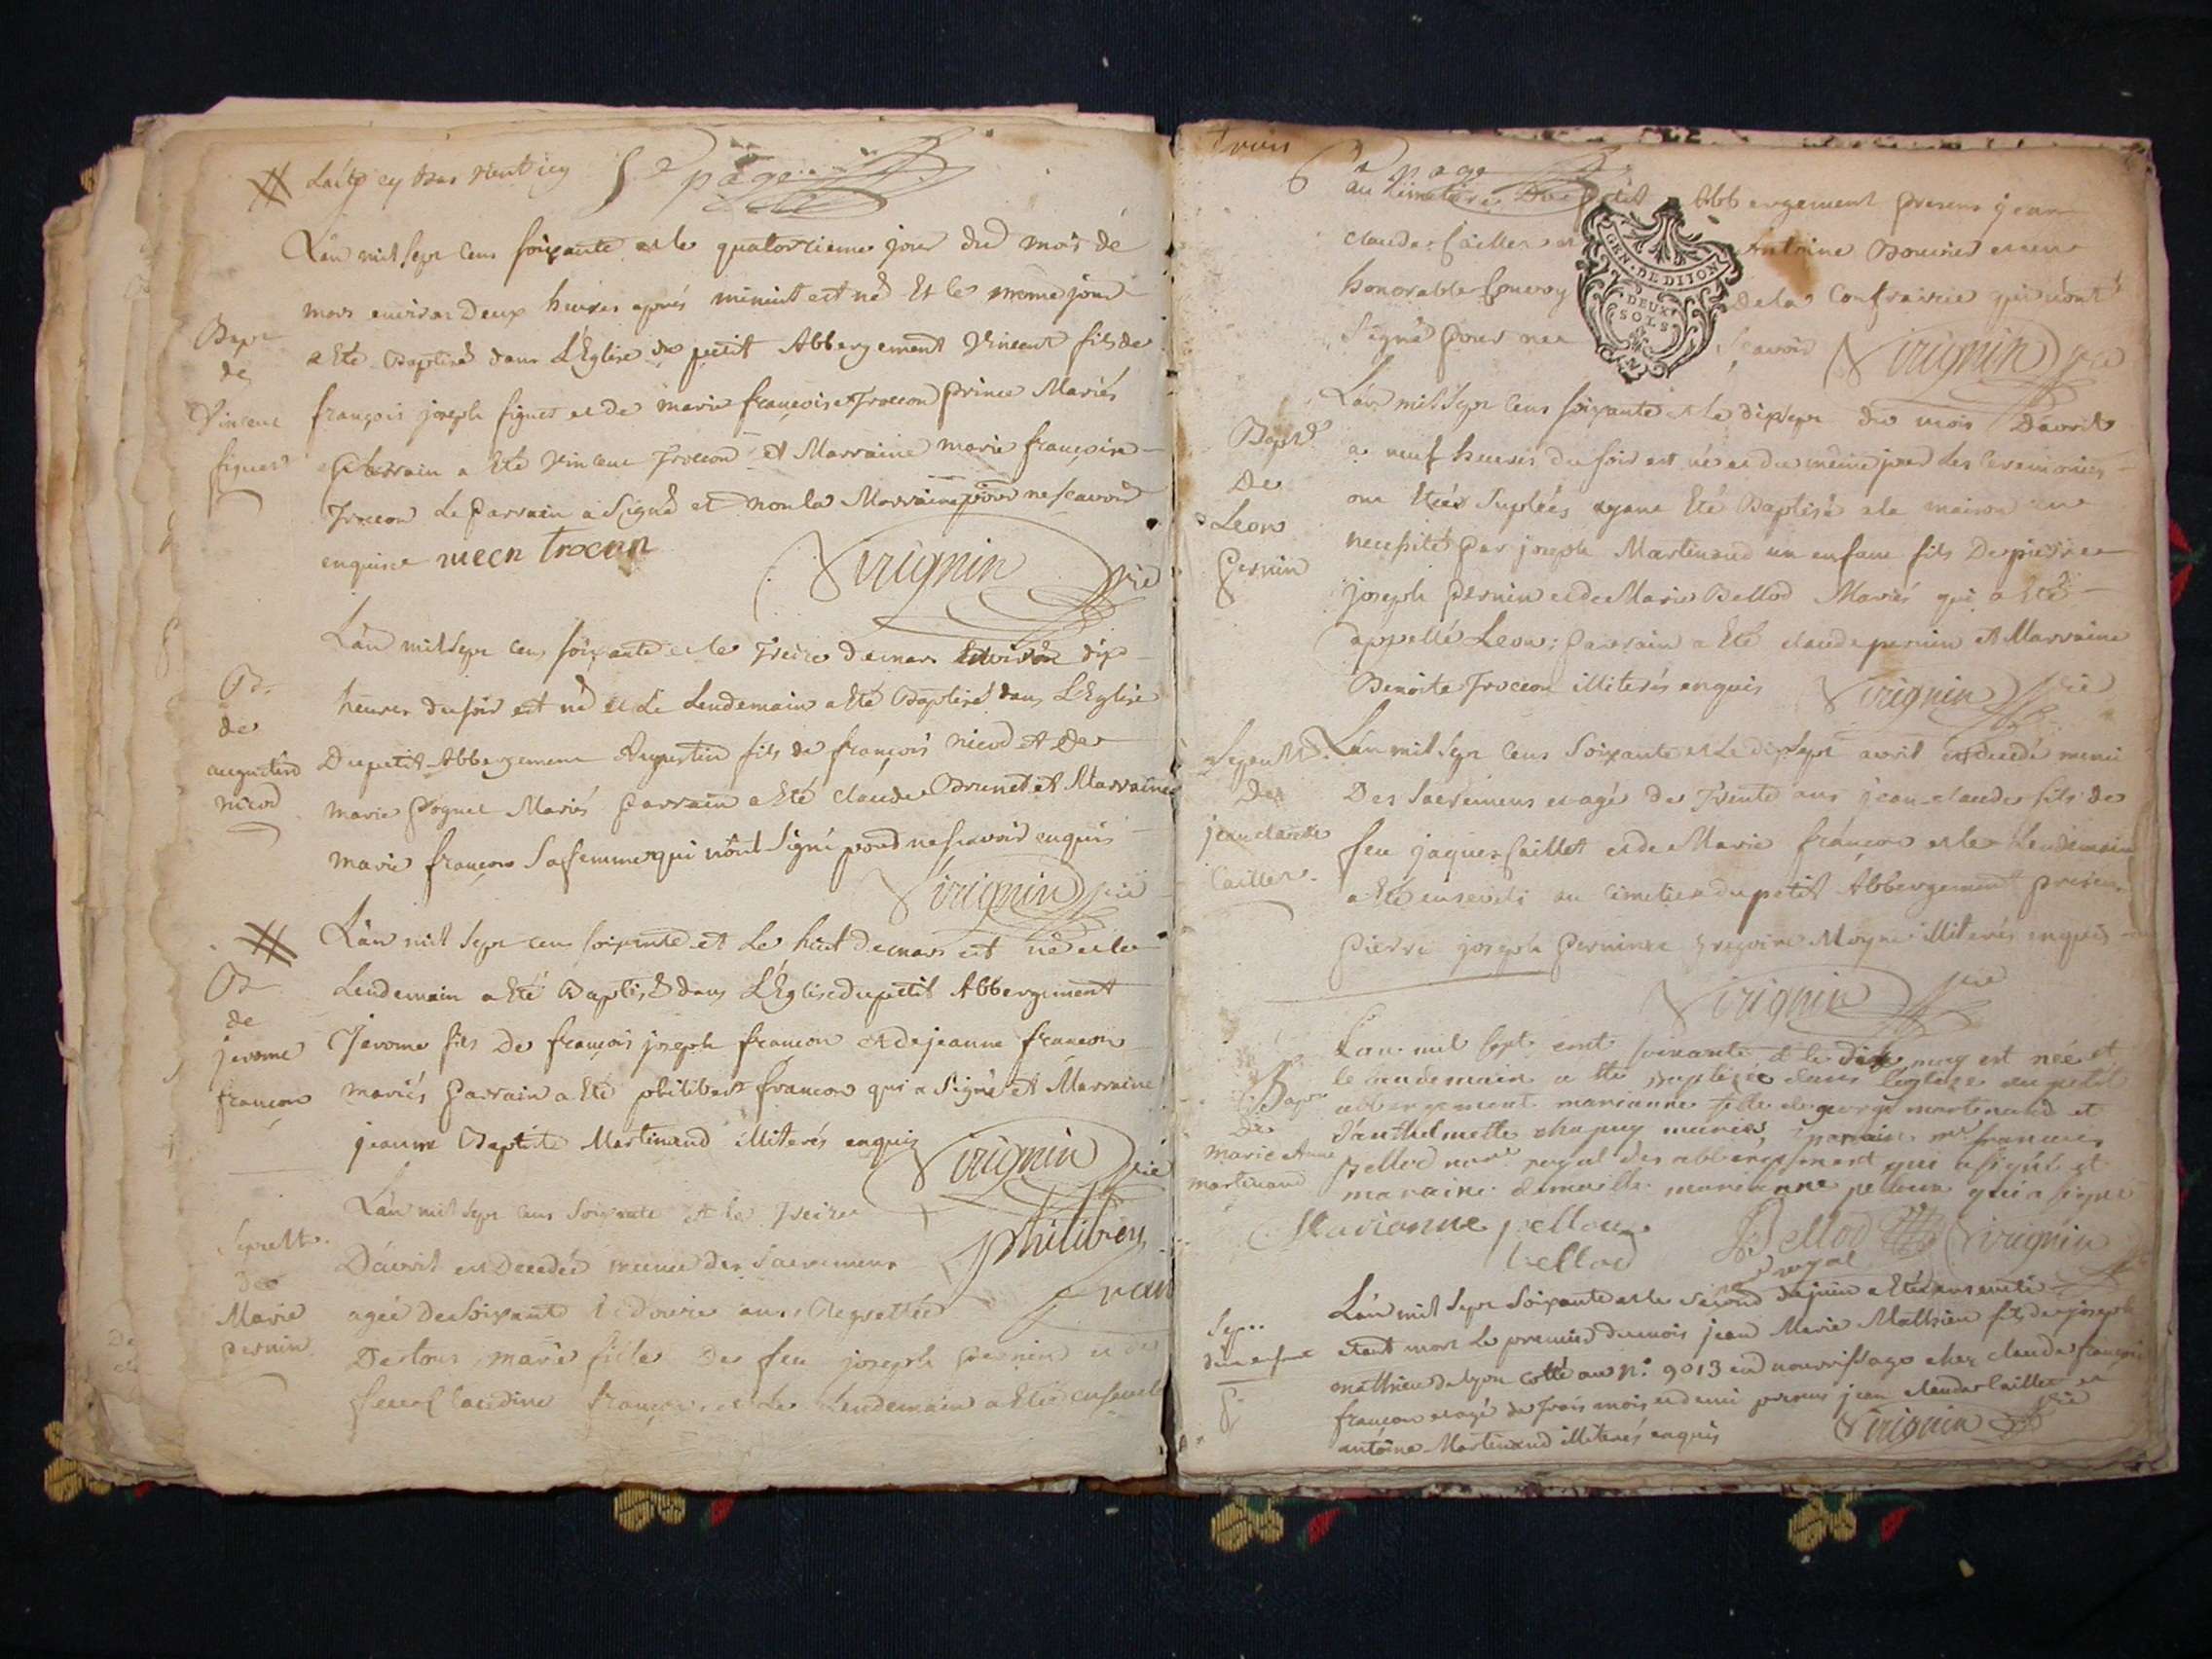 5e page
L'acte cy bas vient icy
L'an mil sept cens soixante et le quatorzieme jour du mois de
mars environ deux heures aprés minuit est né Et le meme jour
a Eté Baptisé dans L'Eglise du petit Abbergement Vincent fils de
françois joseph figuet et de marie françoise Trocon Mariés
Parrain a Eté Vincent Trocon et Marraine marie françoise
Trocon Le Parrain a Signé et non la Marraine pour ne scavoir
enquise trocon
Virignin
Bapt
de
Vincent
figuet
L'an mil sept cens soixante et le Treize de mars Environ dix
heures du soir est né et Le Lendemain a Eté Baptisé dans L'Eglise
Du petit Abbergement Augustin fils de françois nicod et De
marie Mariés Parrain a Eté claude Brunet et Marraine
marie françon Sa femme qui n'ont Signé pour ne scavoir enquis
Virignin
B.
de
augustin
nicod
L'an mil sept cens soixante et Le huit de mars est né et le
Lendemain a Eté Baptisé dans L'Eglise du petit Abbergement
Jerome fils De françois joseph françon et de jeanne françon
mariés Parrain a Eté philibert françon qui a Signé et Marraine
jeanne Baptiste Martinand illiterés enquis
Virignin
B
de
jerome
françon
L'an mil sept cens soixante et le Treize
D'avril est Decedée munie des Sacremens
agée de soixante et Douze ans Regrettée
De tous marie fille De feu joseph Pernin et de
feue Claudine françon et Le Lendemain a Eté enseveli
philibert
fran
Marie
pernin
trois
6e page
au Cimetiere Du petit Abbergement Presens jean
claude Caillet et Antoine Bouvier
honorable de la Confrairie qui n'ont
Signé pour ne Scavoir Virignin
GEN. DE DIJON
DEUX
SOLS
L'an mil sept cens soixante et le dix sept du mois D'avril
a neuf heures du soir est né et du même jour les Ceremonies
ont Etées Suplées ayant Eté Baptisé a la maison en
necessité Par joseph Martinand un enfant fils De pierre
joseph Pernin et de Marie Bellod Mariés qui a Eté
appellé Leon: Parrain a Eté claude pernin et Marraine
Benoite Trocon illiterés enquis Virignin
Bapt
De
Leon
Pernin
L'an mil sept cens Soixante et Le dix sept avril est decedé muni
Des Sacremens et agé de Trente ans jean claude fils de
feu jaques Caillet et de Marie françon et le Lendemain
a Eté enseveli au Cimetiere du petit Abbergement Presens
Pierre joseph Pernin et gregoire Moyne illiterés enquis
Virignin
De
jean claude
Caillet
L'an mil sept cent soixante et le dix may est née et
le lendemain a ete baptizée dans l'eglize du petit
abbergement marianne fille de george martinand et
d'anthelmette chapuy mariés, parrain mr francois
bellod royal des abbergement qui a signé et
maraine demoiselle marianne pelloux qui a signé
Marianne pelloux Bellod Virignin
bellod royal
Bapt
De
marie Anne
martinand
L'an mil sept Soixante et le Second de juin a Eté enseveli
etant mort Le premier du mois jean Marie Mathieu fils de joseph
mathieu de lyon cotté au No. 9013 en nourrissage chez claude françois
françon et agé de trois mois et demi presens jean claude Caillet et
antoine Martinand illiterés enquis Virignin
Sep...
d'un enfant